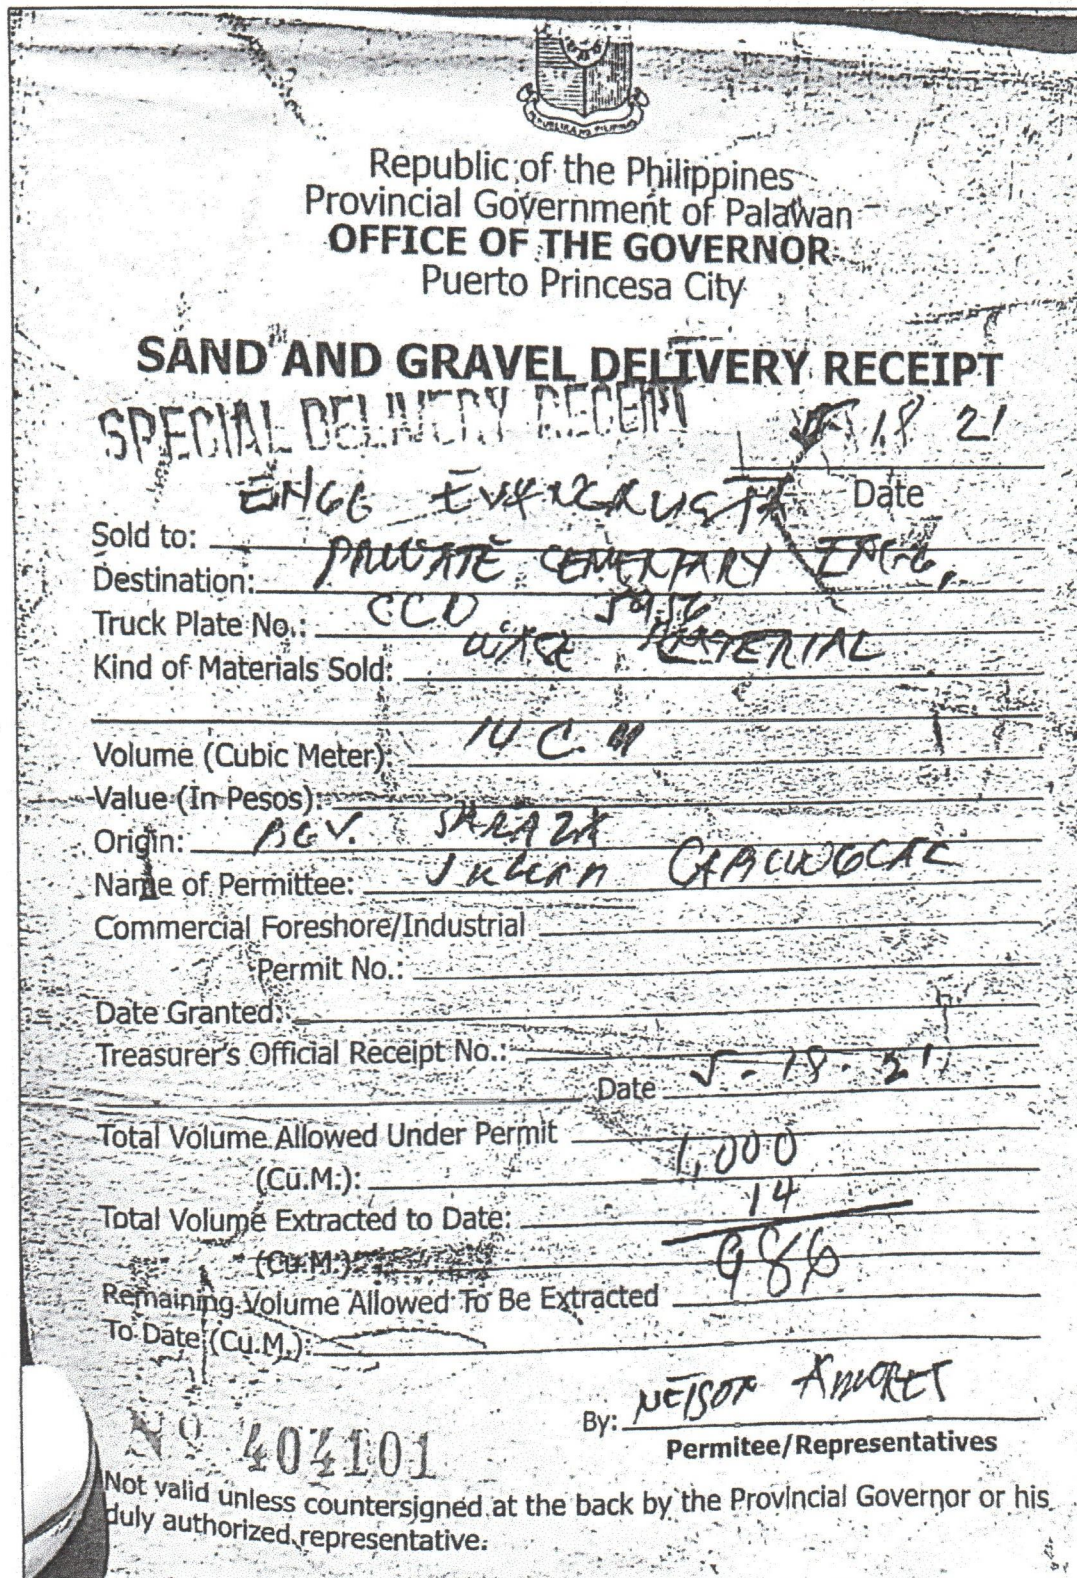 REPUBLIKA NG PILIPINAS
Republic of the Philippines
Provincial Government of Palawan
OFFICE OF THE GOVERNOR
Puerto Princesa City
SAND AND GRAVEL DELIVERY RECEIPT
SPECIAL DELIVERY RECEIPT
18 21
Date
Sold to: ENGG
Destination: PRIVATE CEMENTARY
Truck Plate No.: CCO 5956
Kind of Materials Sold: MATERIAL
Volume (Cubic Meter): 14 C.M
Value (In Pesos):
Origin: BGY.
Name of Permittee: Julian
Commercial Foreshore/Industrial
Permit No.:
Date Granted:
Treasurer's Official Receipt No.:
Date 5-18-21
Total Volume Allowed Under Permit
(Cu.M.): 1,000
Total Volume Extracted to Date: 14
(Cu.M.):
Remaining Volume Allowed To Be Extracted 986
To Date (Cu.M.):
By: NELSON
Permitee/Representatives
Nº 404101
Not valid unless countersigned at the back by the Provincial Governor or his
duly authorized representative.